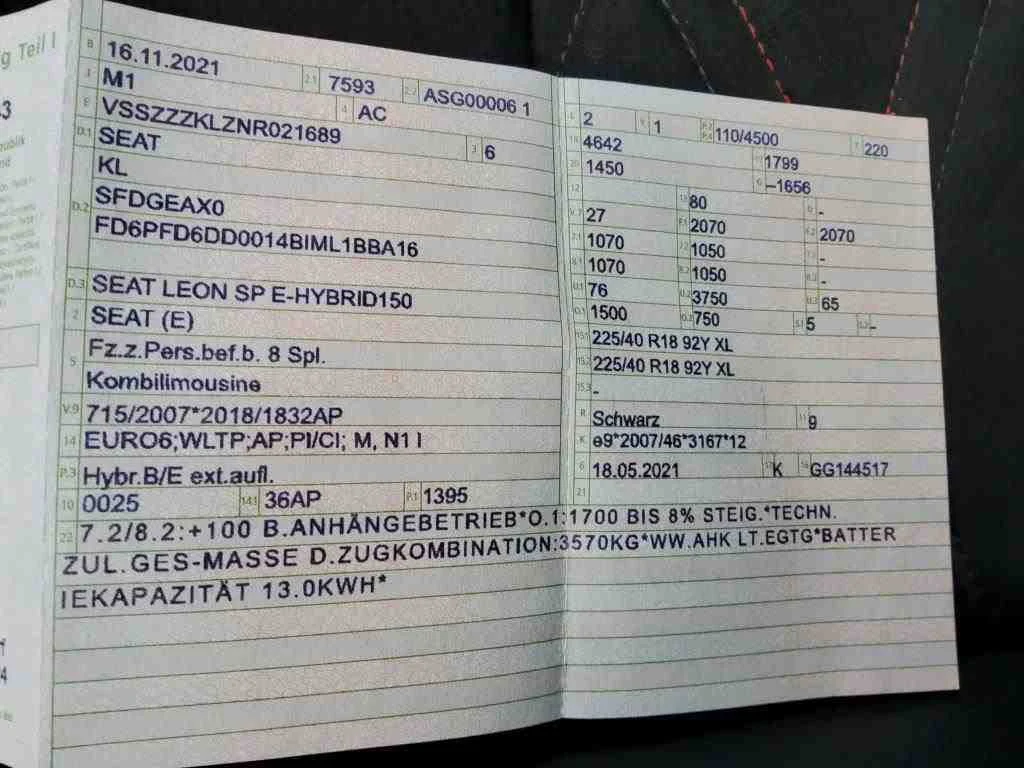 g Teil I
B 16.11.2021 2.1 7593 2.2 ASG00006 1
J M1 4 AC
E VSSZZZKLZNR021689 3 6
D.1 SEAT
KL
D.2 SFDGEAX0
FD6PFD6DD0014BIML1BBA16
D.3 SEAT LEON SP E-HYBRID150
2 SEAT (E)
5 Fz.z.Pers.bef.b. 8 Spl.
Kombilimousine
V.9 715/2007*2018/1832AP
14 EURO6;WLTP;AP;PI/CI; M, N1 I
P.3 Hybr.B/E ext.aufl.
10 0025 14.1 36AP P.1 1395
L 2 9 1 P.2 P.4 110/4500 T 220
18 4642 19 1799
20 1450 G –1656
12 13 80 Q -
V.7 27 F.1 2070 F.2 2070
7.1 1070 7.2 1050 7.3 -
8.1 1070 8.2 1050 8.3 -
U.1 76 U.2 3750 U.3 65
O.1 1500 O.2 750 S.1 5 S.2 -
15.1 225/40 R18 92Y XL
15.2 225/40 R18 92Y XL
15.3 -
R Schwarz 11 9
K e9*2007/46*3167*12
6 18.05.2021 17 K 16 GG144517
21
22 7.2/8.2:+100 B.ANHÄNGEBETRIEB*O.1:1700 BIS 8% STEIG.*TECHN.
ZUL.GES-MASSE D.ZUGKOMBINATION:3570KG*WW.AHK LT.EGTG*BATTER
IEKAPAZITÄT 13.0KWH*